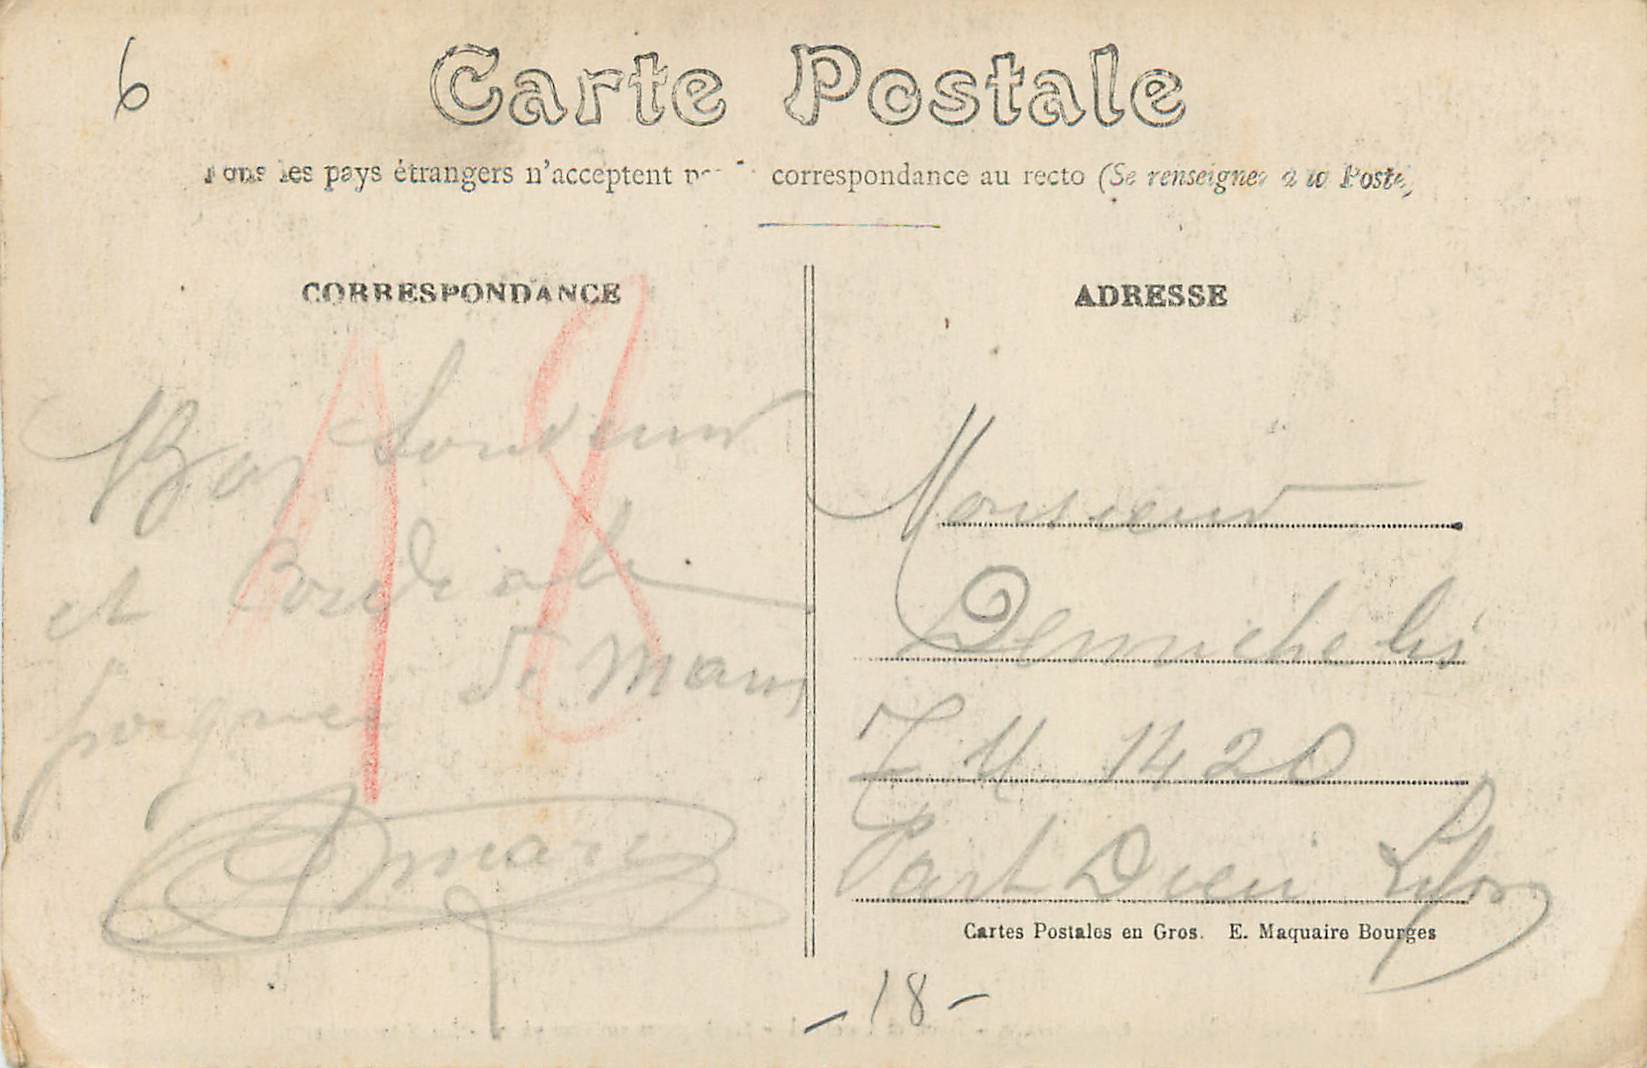 6
Carte Postale
Tous les pays étrangers n'acceptent correspondance au recto (Se renseigner à la Poste)
CORRESPONDANCE
ADRESSE
18
Bon Souvenir
et Cordiale
poignée de main
Monsieur
Demichelis
T M 1420
Part Dieu Lyon
Cartes Postales en Gros. E. Maquaire Bourges
- 18 -